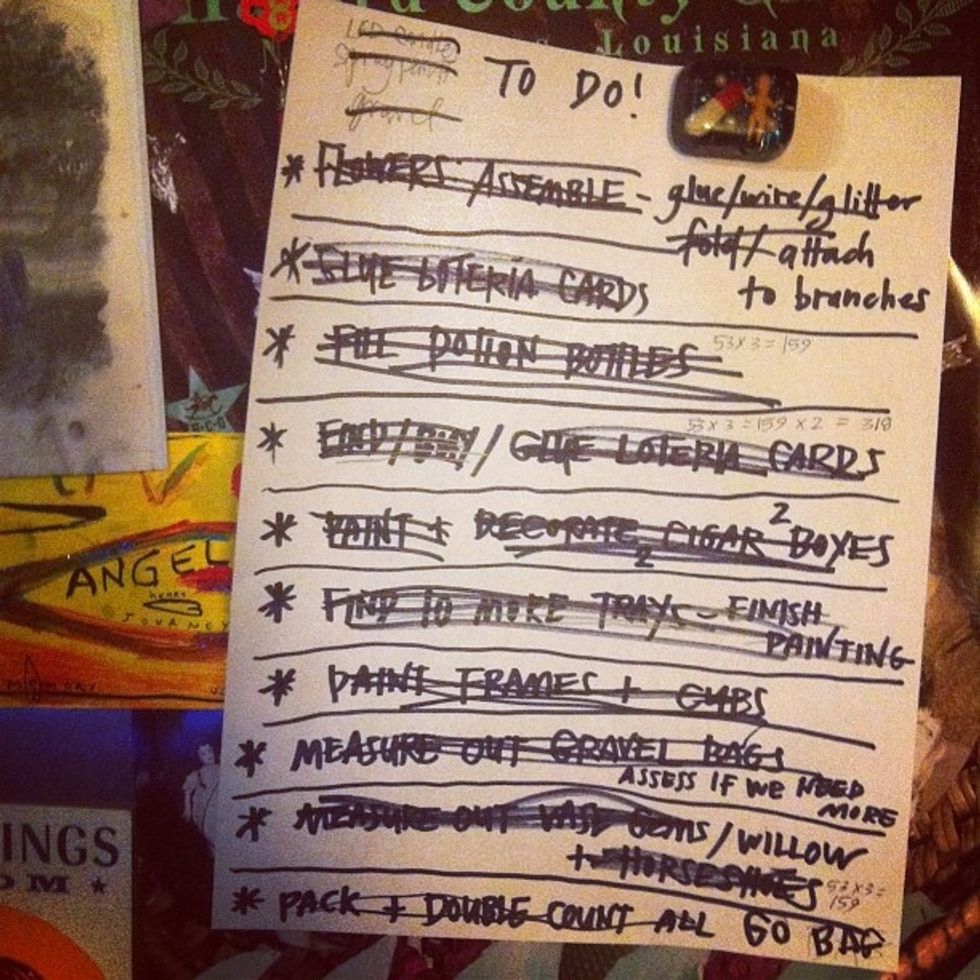 County
Louisiana
TO DO!
LED candles
spray paint
gravel
* FLOWERS: ASSEMBLE - glue/wire/glitter
fold/attach
to branches
* GLUE LOTERIA CARDS
* FILL POTION BOTTLES 53x3=159
53x3=159x2=318
* FIND/BUY/GLUE LOTERIA CARDS
* PAINT + DECORATE 2 CIGAR 2 BOXES
* FIND 10 MORE TRAYS - FINISH
PAINTING
* PAINT FRAMES + CUBS
* MEASURE OUT GRAVEL BAGS
ASSESS IF WE NEED
MORE
* MEASURE OUT VASE GEMS/WILLOW
+ HORSESHOES 53x3=
159
* PACK + DOUBLE COUNT ALL GO BAG
ANGEL
JOURNEY
INGS
OM ★